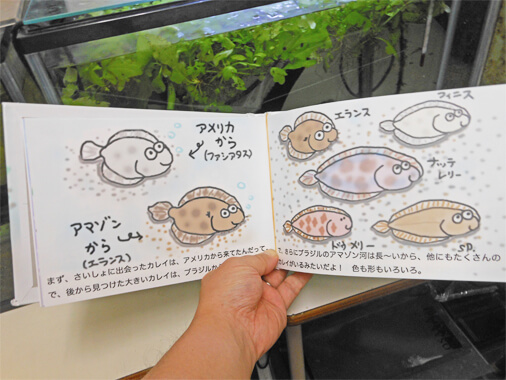 アメリカ
から
(ファシアタス)
アマゾン
から
(エランス)
まず、さいしょに出会ったカレイは、アメリカから来てたんだって
で、後から見つけた大きいカレイは、ブラジルか
エランス
フィニス
ナッテ
レリー
ドゥメリー
SP.
、さらにブラジルのアマゾン河は長〜いから、他にもたくさんの
カレイがいるみたいだよ！ 色も形もいろいろ。